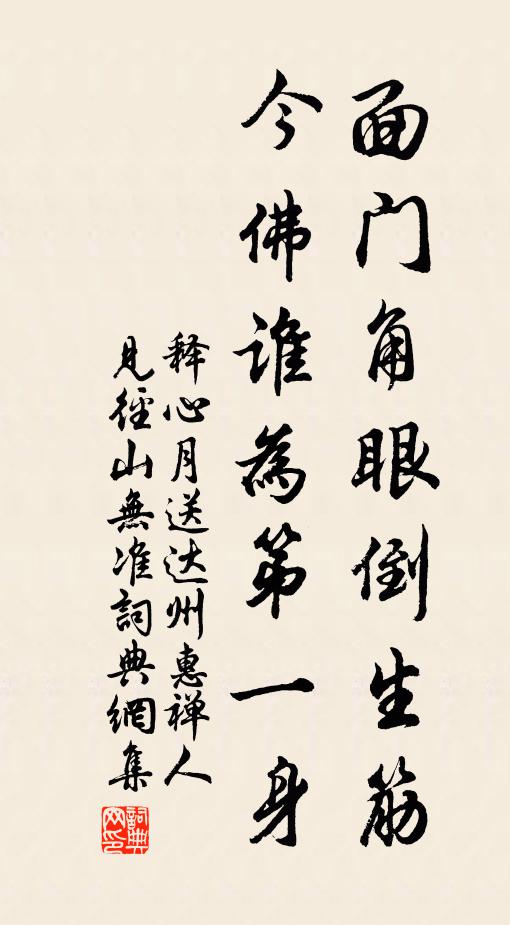 面门角眼倒生筋
今佛谁為第一身
释心月送达州惠禅人
見徑山無准詞典網集
詞典
网印